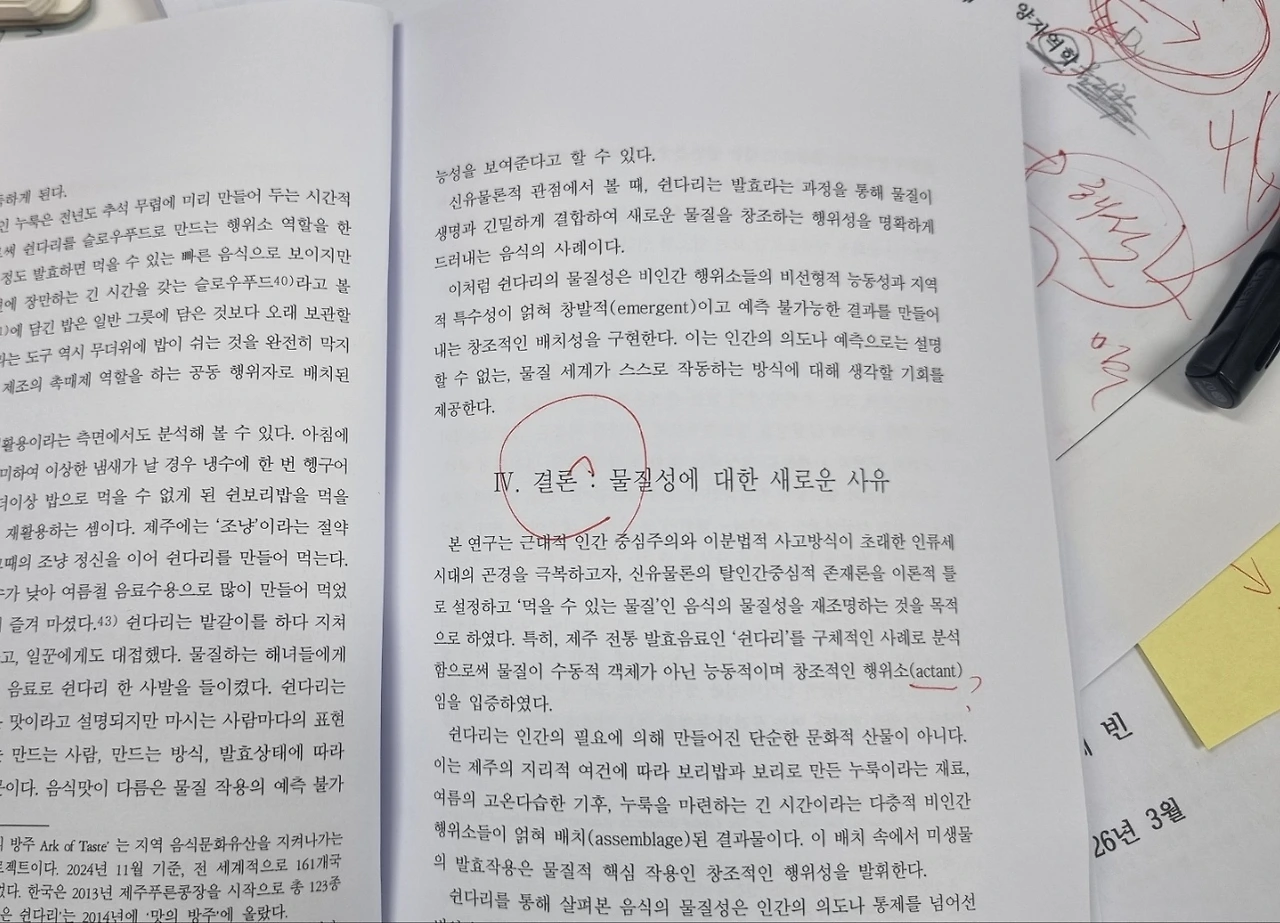 하게 된다.
인 누룩은 전년도 추석 무렵에 미리 만들어 두는 시간적
써 쉰다리를 슬로우푸드로 만드는 행위소 역할을 한
정도 발효하면 먹을 수 있는 빠른 음식으로 보이지만
에 장만하는 긴 시간을 갖는 슬로우푸드40)라고 볼
)에 담긴 밥은 일반 그릇에 담은 것보다 오래 보관할
라는 도구 역시 무더위에 밥이 쉬는 것을 완전히 막지
제조의 촉매제 역할을 하는 공동 행위자로 배치된
활용이라는 측면에서도 분석해 볼 수 있다. 아침에
미하여 이상한 냄새가 날 경우 냉수에 한 번 헹구어
더이상 밥으로 먹을 수 없게 된 쉰보리밥을 먹을
재활용하는 셈이다. 제주에는 '조냥'이라는 절약
때의 조냥 정신을 이어 쉰다리를 만들어 먹는다.
가 낮아 여름철 음료수용으로 많이 만들어 먹었
즐겨 마셨다.43) 쉰다리는 밭갈이를 하다 지쳐
고, 일꾼에게도 대접했다. 물질하는 해녀들에게
음료로 쉰다리 한 사발을 들이켰다. 쉰다리는
맛이라고 설명되지만 마시는 사람마다의 표현
는 만드는 사람, 만드는 방식, 발효상태에 따라
이다. 음식맛이 다름은 물질 작용의 예측 불가
방주 Ark of Taste' 는 지역 음식문화유산을 지켜나가는
로젝트이다. 2024년 11월 기준, 전 세계적으로 161개국
었다. 한국은 2013년 제주푸른콩장을 시작으로 총 123종
은 쉰다리'는 2014년에 '맛의 방주'에 올랐다.
능성을 보여준다고 할 수 있다.
신유물론적 관점에서 볼 때, 쉰다리는 발효라는 과정을 통해 물질이
생명과 긴밀하게 결합하여 새로운 물질을 창조하는 행위성을 명확하게
드러내는 음식의 사례이다.
이처럼 쉰다리의 물질성은 비인간 행위소들의 비선형적 능동성과 지역
적 특수성이 얽혀 창발적(emergent)이고 예측 불가능한 결과를 만들어
내는 창조적인 배치성을 구현한다. 이는 인간의 의도나 예측으로는 설명
할 수 없는, 물질 세계가 스스로 작동하는 방식에 대해 생각할 기회를
제공한다.
Ⅳ. 결론 : 물질성에 대한 새로운 사유
본 연구는 근대적 인간 중심주의와 이분법적 사고방식이 초래한 인류세
시대의 곤경을 극복하고자, 신유물론의 탈인간중심적 존재론을 이론적 틀
로 설정하고 '먹을 수 있는 물질'인 음식의 물질성을 재조명하는 것을 목적
으로 하였다. 특히, 제주 전통 발효음료인 '쉰다리'를 구체적인 사례로 분석
함으로써 물질이 수동적 객체가 아닌 능동적이며 창조적인 행위소(actant)
임을 입증하였다.
쉰다리는 인간의 필요에 의해 만들어진 단순한 문화적 산물이 아니다.
이는 제주의 지리적 여건에 따라 보리밥과 보리로 만든 누룩이라는 재료,
여름의 고온다습한 기후, 누룩을 마련하는 긴 시간이라는 다층적 비인간
행위소들이 얽혀 배치(assemblage)된 결과물이다. 이 배치 속에서 미생물
의 발효작용은 물질적 핵심 작용인 창조적인 행위성을 발휘한다.
쉰다리를 통해 살펴본 음식의 물질성은 인간의 의도나 통제를 넘어선
양자역학
빈
26년 3월